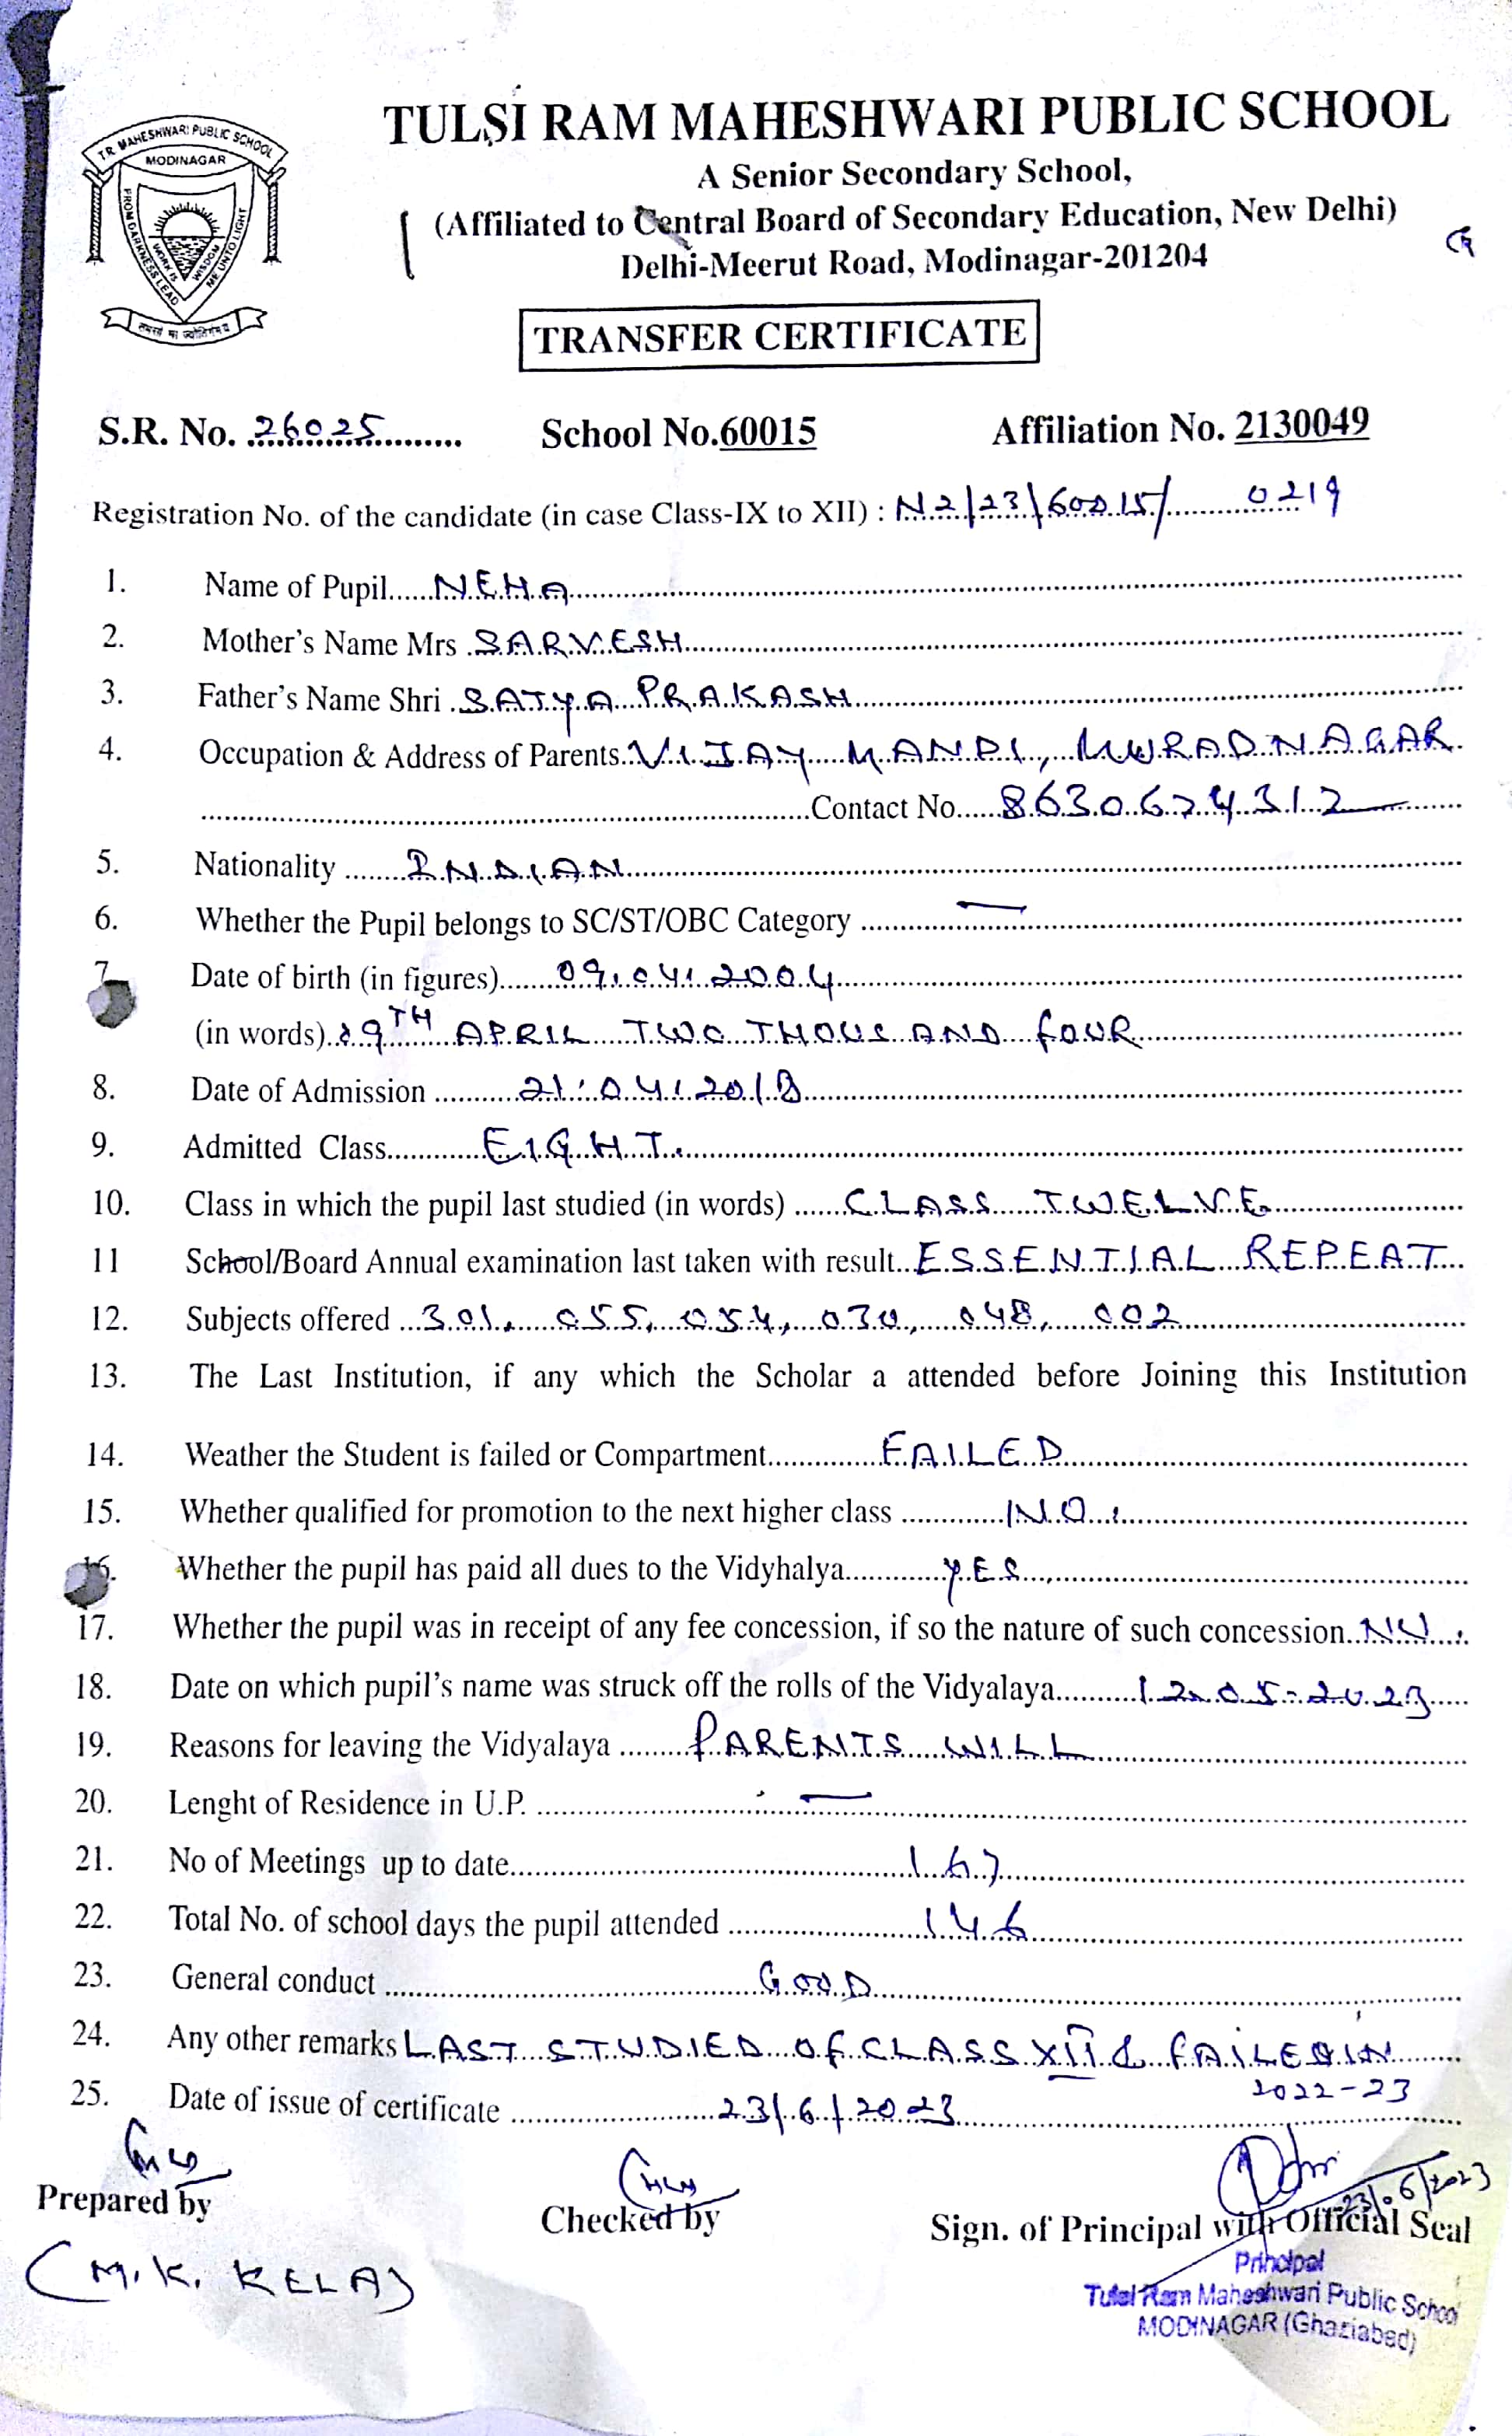 T.R. MAHESHWARI PUBLIC SCHOOL
MODINAGAR
FROM DARKNESS LEAD ME UNTO LIGHT
WORK IS WISDOM
तमसो मा ज्योतिर्गमय
TULSI RAM MAHESHWARI PUBLIC SCHOOL
A Senior Secondary School,
(Affiliated to Central Board of Secondary Education, New Delhi)
Delhi-Meerut Road, Modinagar-201204
TRANSFER CERTIFICATE
S.R. No. 26025 School No.60015 Affiliation No. 2130049
Registration No. of the candidate (in case Class-IX to XII) : N2/23/60015/ 0219
1. Name of Pupil NEHA
2. Mother's Name Mrs SARVESH
3. Father's Name Shri SATYA PRAKASH
4. Occupation & Address of Parents VIJAY MANDI, MURADNAGAR
Contact No. 8630674312
5. Nationality INDIAN
6. Whether the Pupil belongs to SC/ST/OBC Category —
7. Date of birth (in figures) 09.04.2004
(in words) 09TH APRIL TWO THOUSAND FOUR
8. Date of Admission 21.04.2018
9. Admitted Class EIGHT.
10. Class in which the pupil last studied (in words) CLASS TWELVE
11 School/Board Annual examination last taken with result ESSENTIAL REPEAT
12. Subjects offered 301, 055, 054, 030, 048, 002
13. The Last Institution, if any which the Scholar a attended before Joining this Institution
14. Weather the Student is failed or Compartment FAILED
15. Whether qualified for promotion to the next higher class NO.
16. Whether the pupil has paid all dues to the Vidyhalya YES
17. Whether the pupil was in receipt of any fee concession, if so the nature of such concession
18. Date on which pupil's name was struck off the rolls of the Vidyalaya 12-05-2023
19. Reasons for leaving the Vidyalaya PARENTS WILL
20. Lenght of Residence in U.P. —
21. No of Meetings up to date 167
22. Total No. of school days the pupil attended 146
23. General conduct GOOD
24. Any other remarks LAST STUDIED OF CLASS XII & FAILED IN
2022-23
25. Date of issue of certificate 23/6/2023
23/.6/2023
Prepared by Checked by Sign. of Principal with Official Seal
(M.K. KELA)
Principal
Tulsi Ram Maheshwari Public School
MODINAGAR (Ghaziabad)